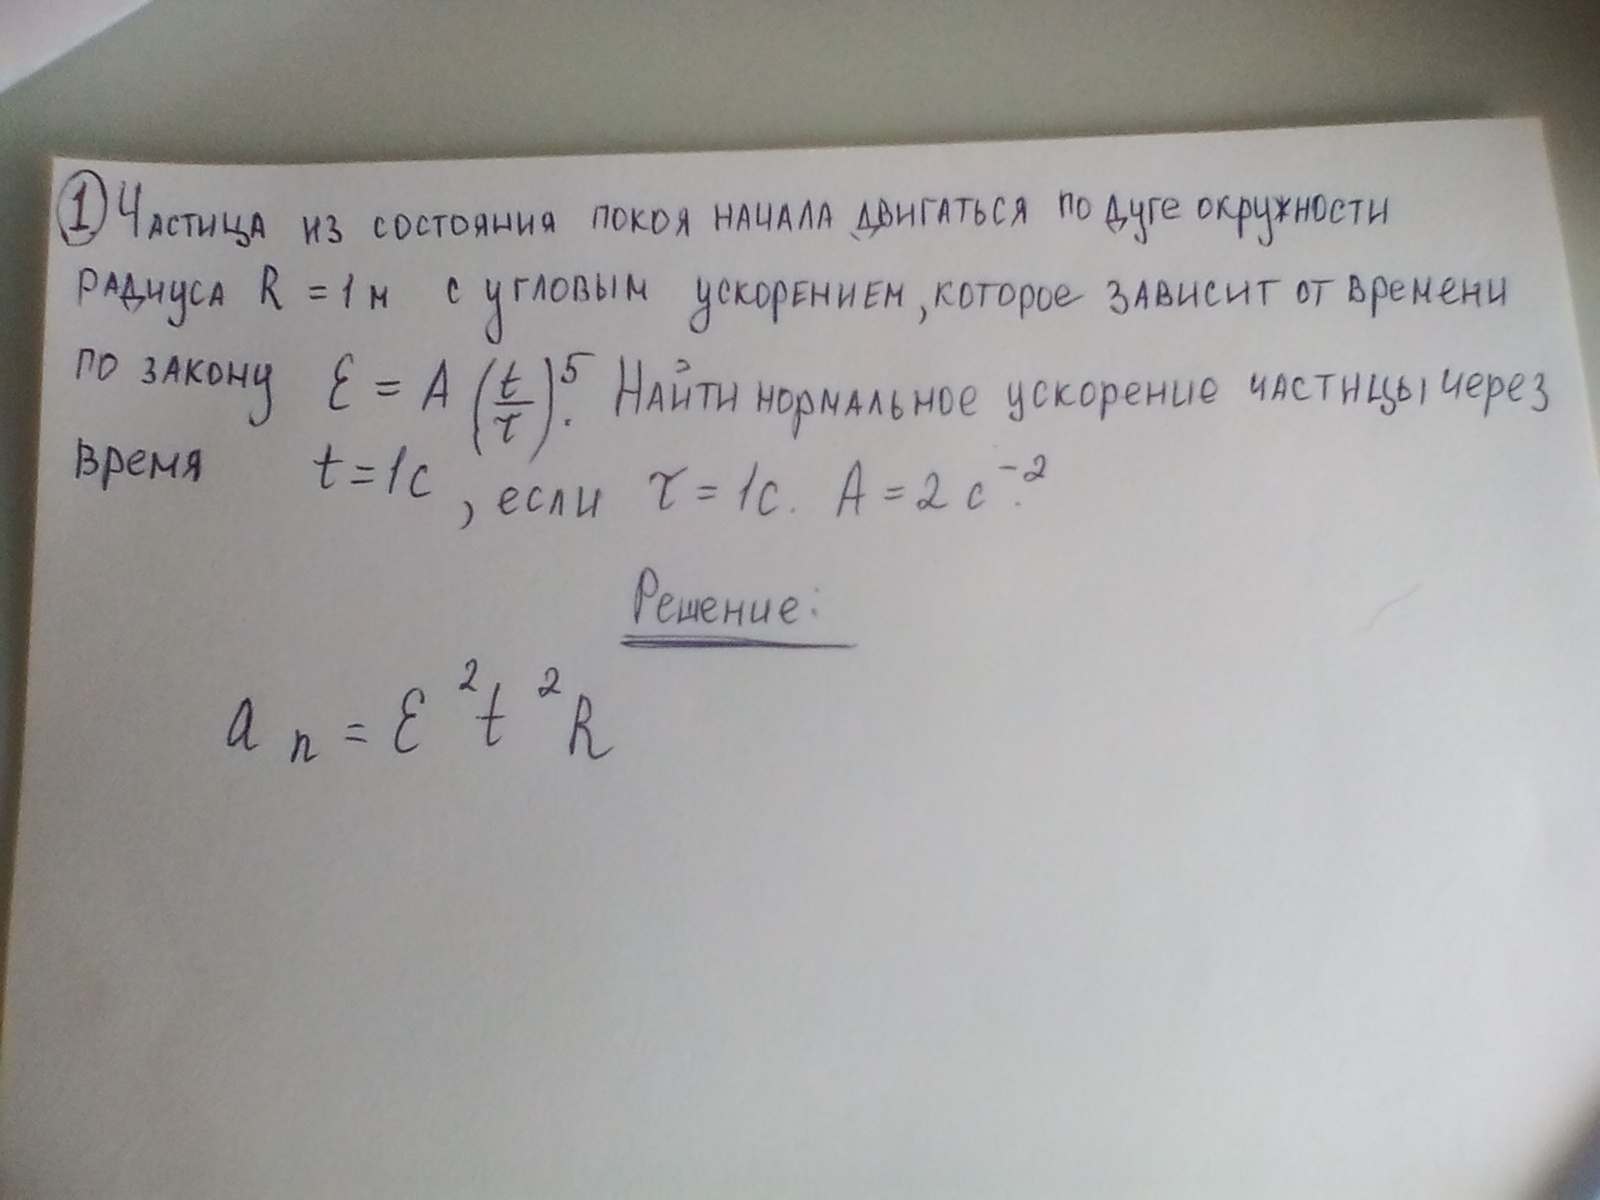 ① Частица из состояния покоя начала двигаться по дуге окружности
радиуса R = 1 м с угловым ускорением, которое зависит от времени
по закону Ɛ = A (t/τ)^5. Найти нормальное ускорение частицы через
время t = 1с, если τ = 1с. A = 2 с^-2.
Решение:
a n = Ɛ^2 t^2 R